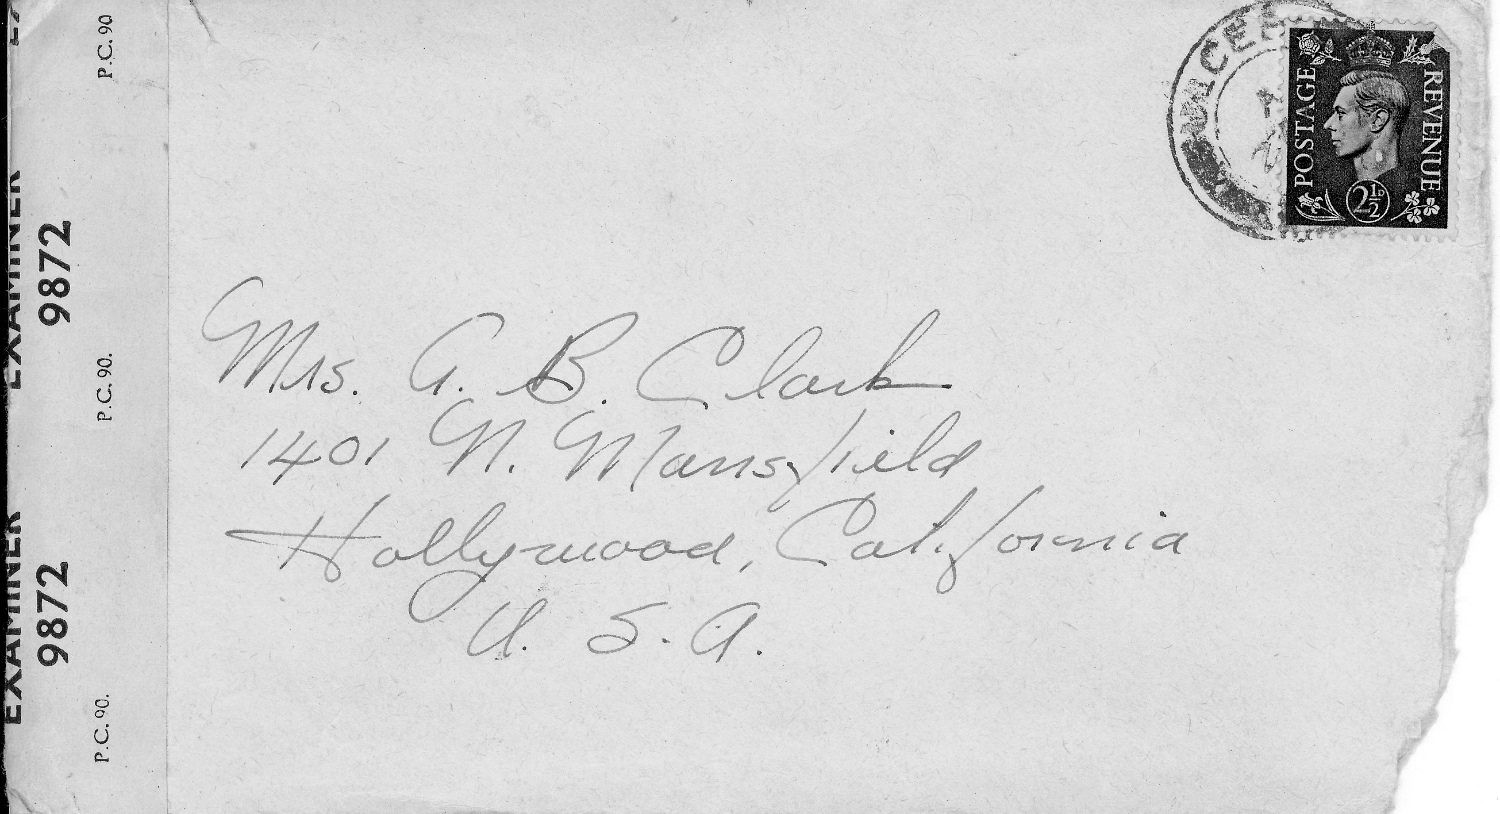 P.C. 90
EXAMINER
9872
P.C. 90.
EXAMINER
9872
P.C. 90.
POSTAGE
REVENUE
2½D
Mrs. A. B. Clark
1401 N. Mansfield
Hollywood, California
U. S. A.